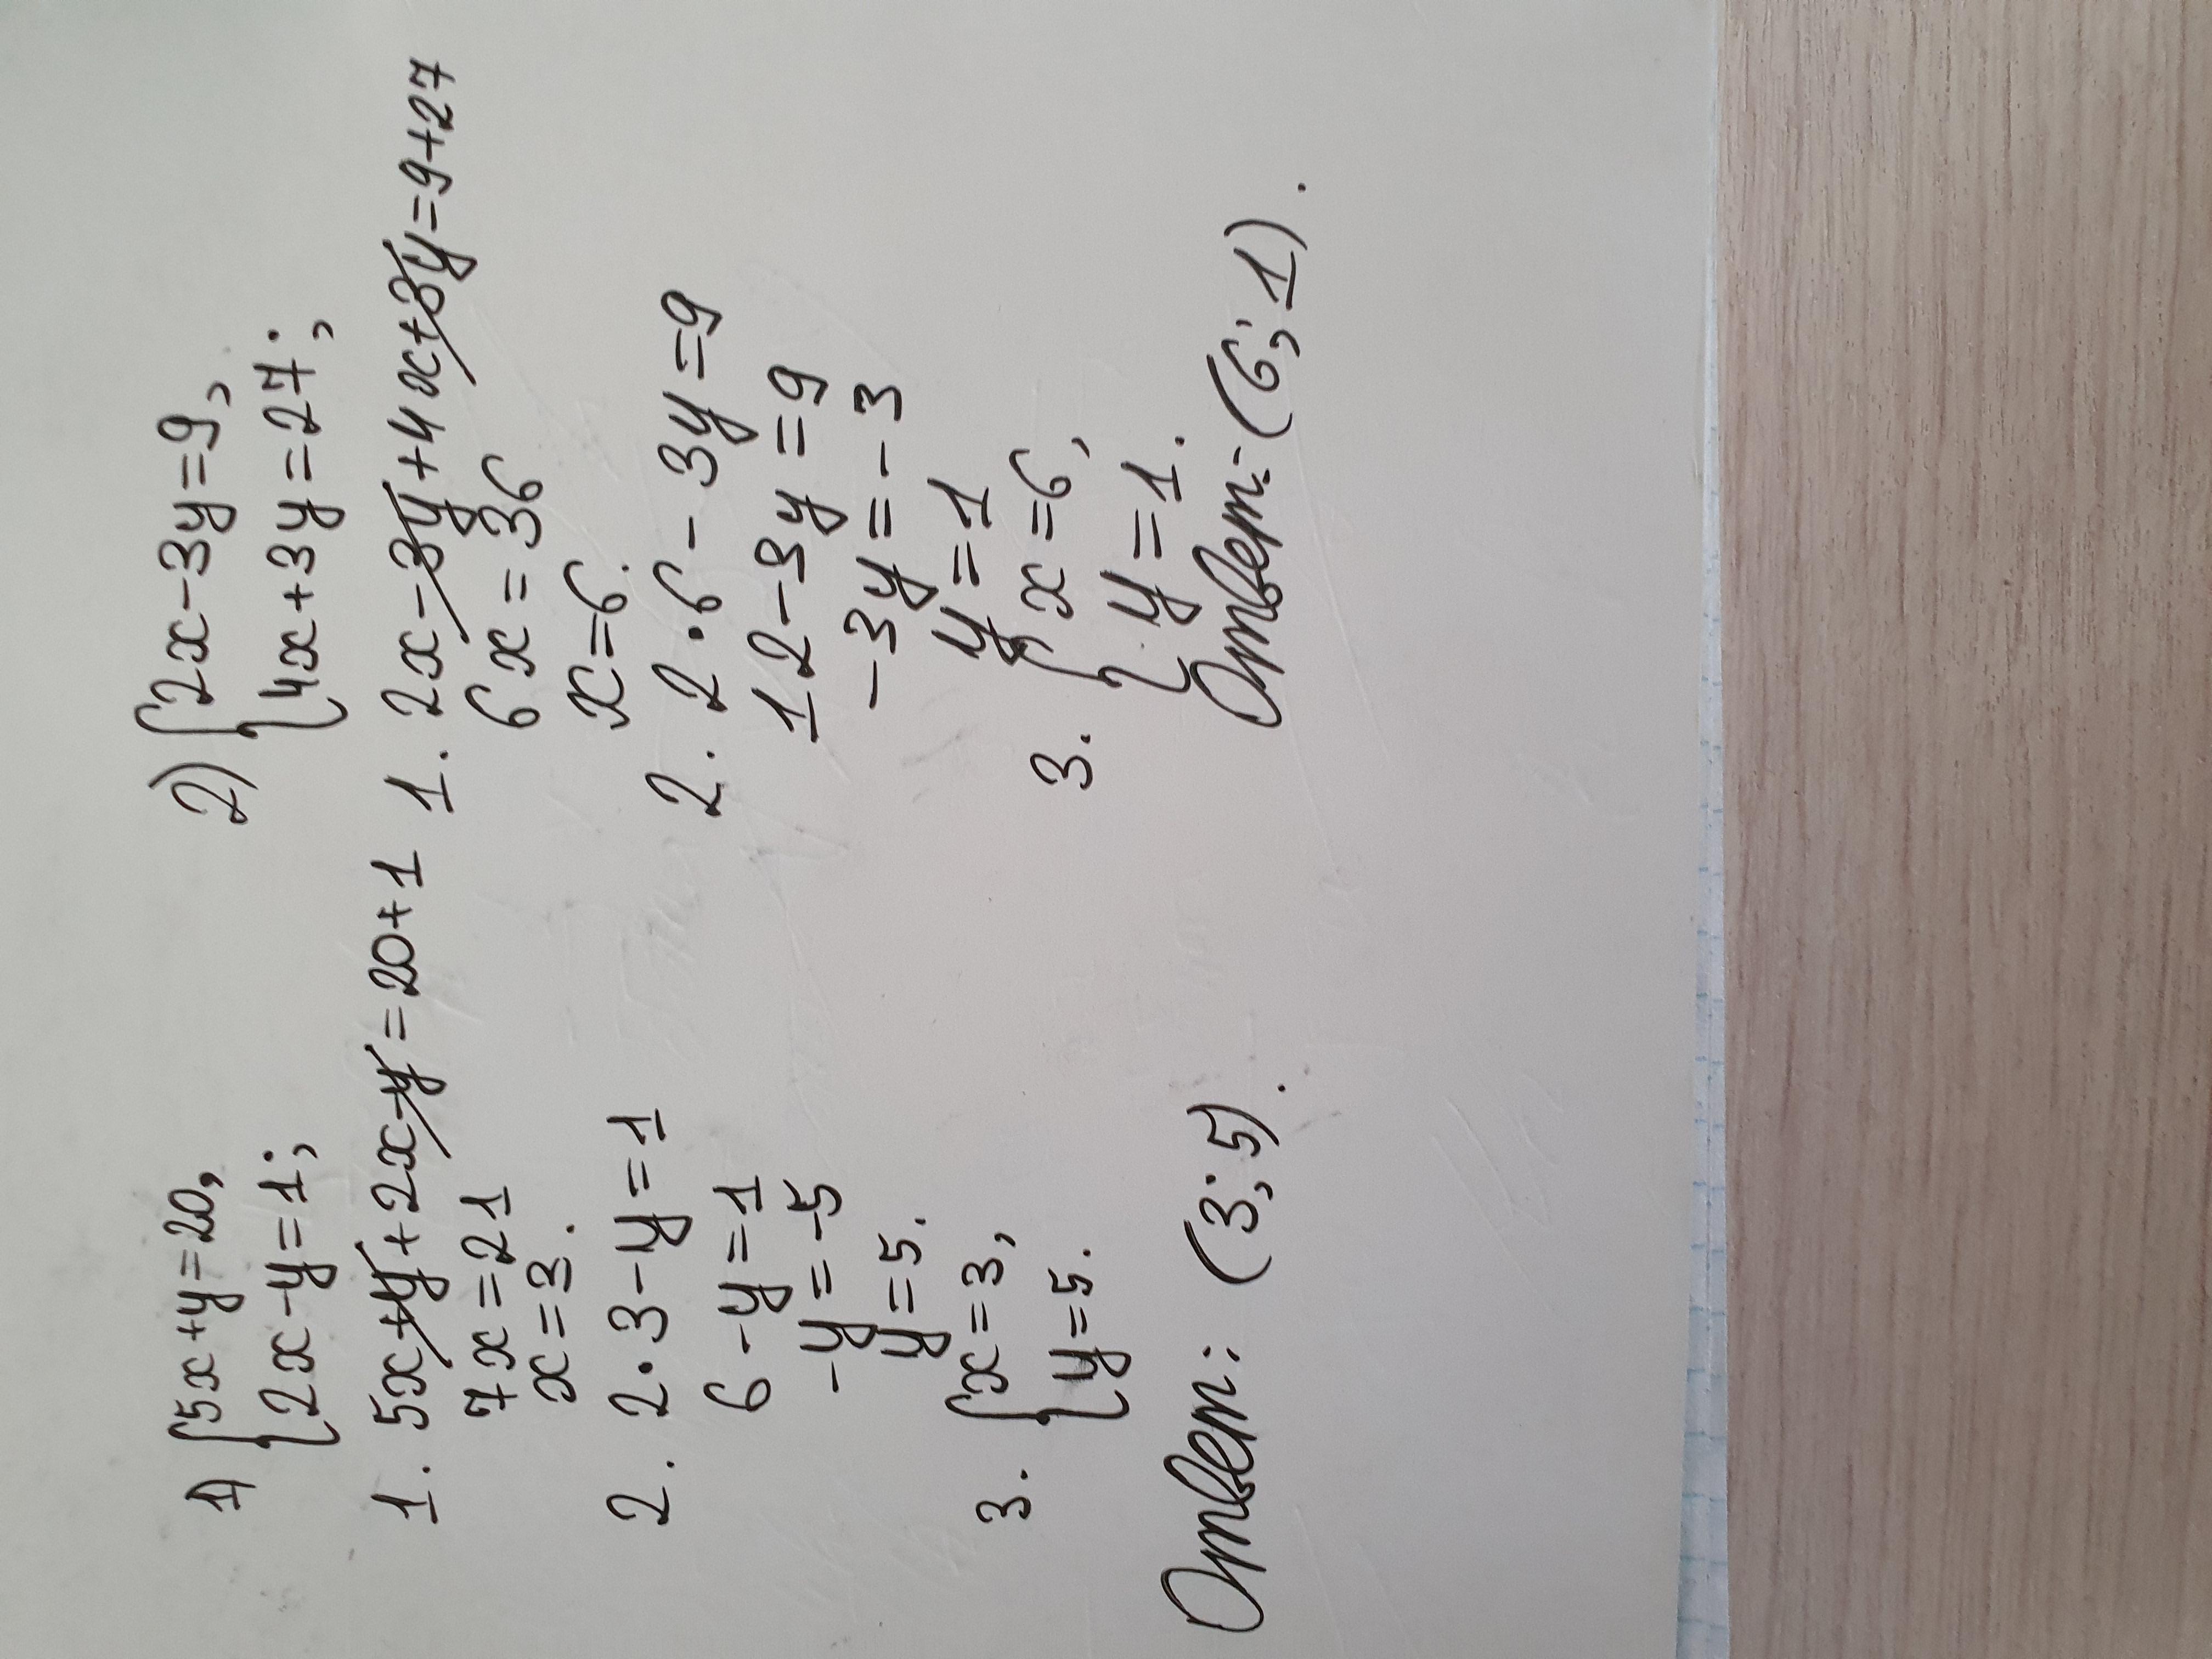 1) {5x+y=20,
2x-y=1;
1. 5x+y+2x-y=20+1
7x=21
x=3.
2. 2·3-y=1
6-y=1
-y=-5
y=5.
3. {x=3,
y=5.
Ответ: (3;5).
2) {2x-3y=9,
4x+3y=27;
1. 2x-3y+4x+3y=9+27
6x=36
x=6.
2. 2·6-3y=9
12-3y=9
-3y=-3
y=1
3. {x=6,
y=1.
Ответ: (6;1).